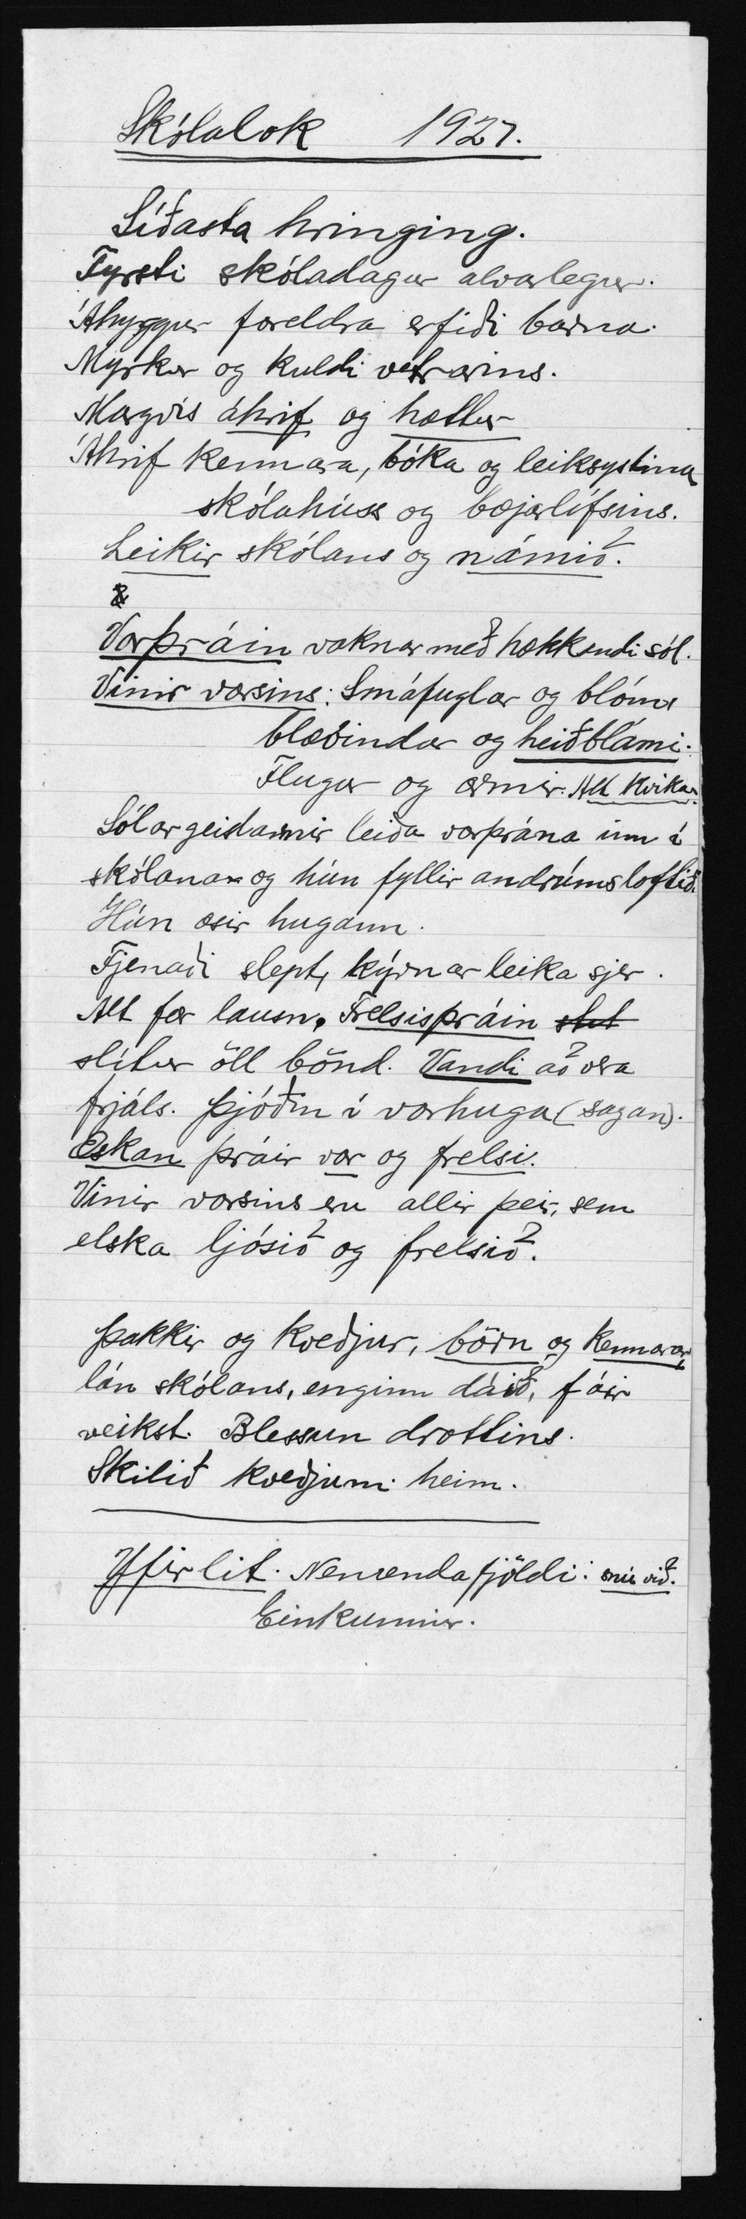 Skólalok 1927.
Síðasta hringing.
Fyrsti skóladagur alvarlegur.
Áhyggur foreldra erfiði barna.
Myrkur og kuldi vetrarins.
Margvís áhrif og hættur
Áhrif kennara, bóka og leiksystina
skólahúss og bæjarlífsins.
Leikir skólans og námið.
Vorþráin vaknar með hækkandi sól.
Vinir vorsins: Smáfuglar og blóm
blæðindar og heiðblámi.
Flugur og ormir. Alt kvikar.
Sólargeislarnir leiða vorþrána inn í
skólana og hún fyllir andrúmsloftið.
Hún æsir hugann.
Fjenaði slept, kýrnar leika sjer.
Alt fær lausn. Frelsisþráin slit
slítur öll bönd. Vandi að vera
frjáls. Þjóðin í vorhuga (sagan).
Æskan þráir vor og frelsi.
Vinir vorsins eru allir þeir, sem
elska ljósið og frelsið.
Þakkir og kveðjur, börn og kennarar,
lán skólans, enginn dáið, fáir
veikst. Blessun drottins.
Skilið kveðjum heim.
Yfirlit. Nemendafjöldi: snú við.
Einkunnir.